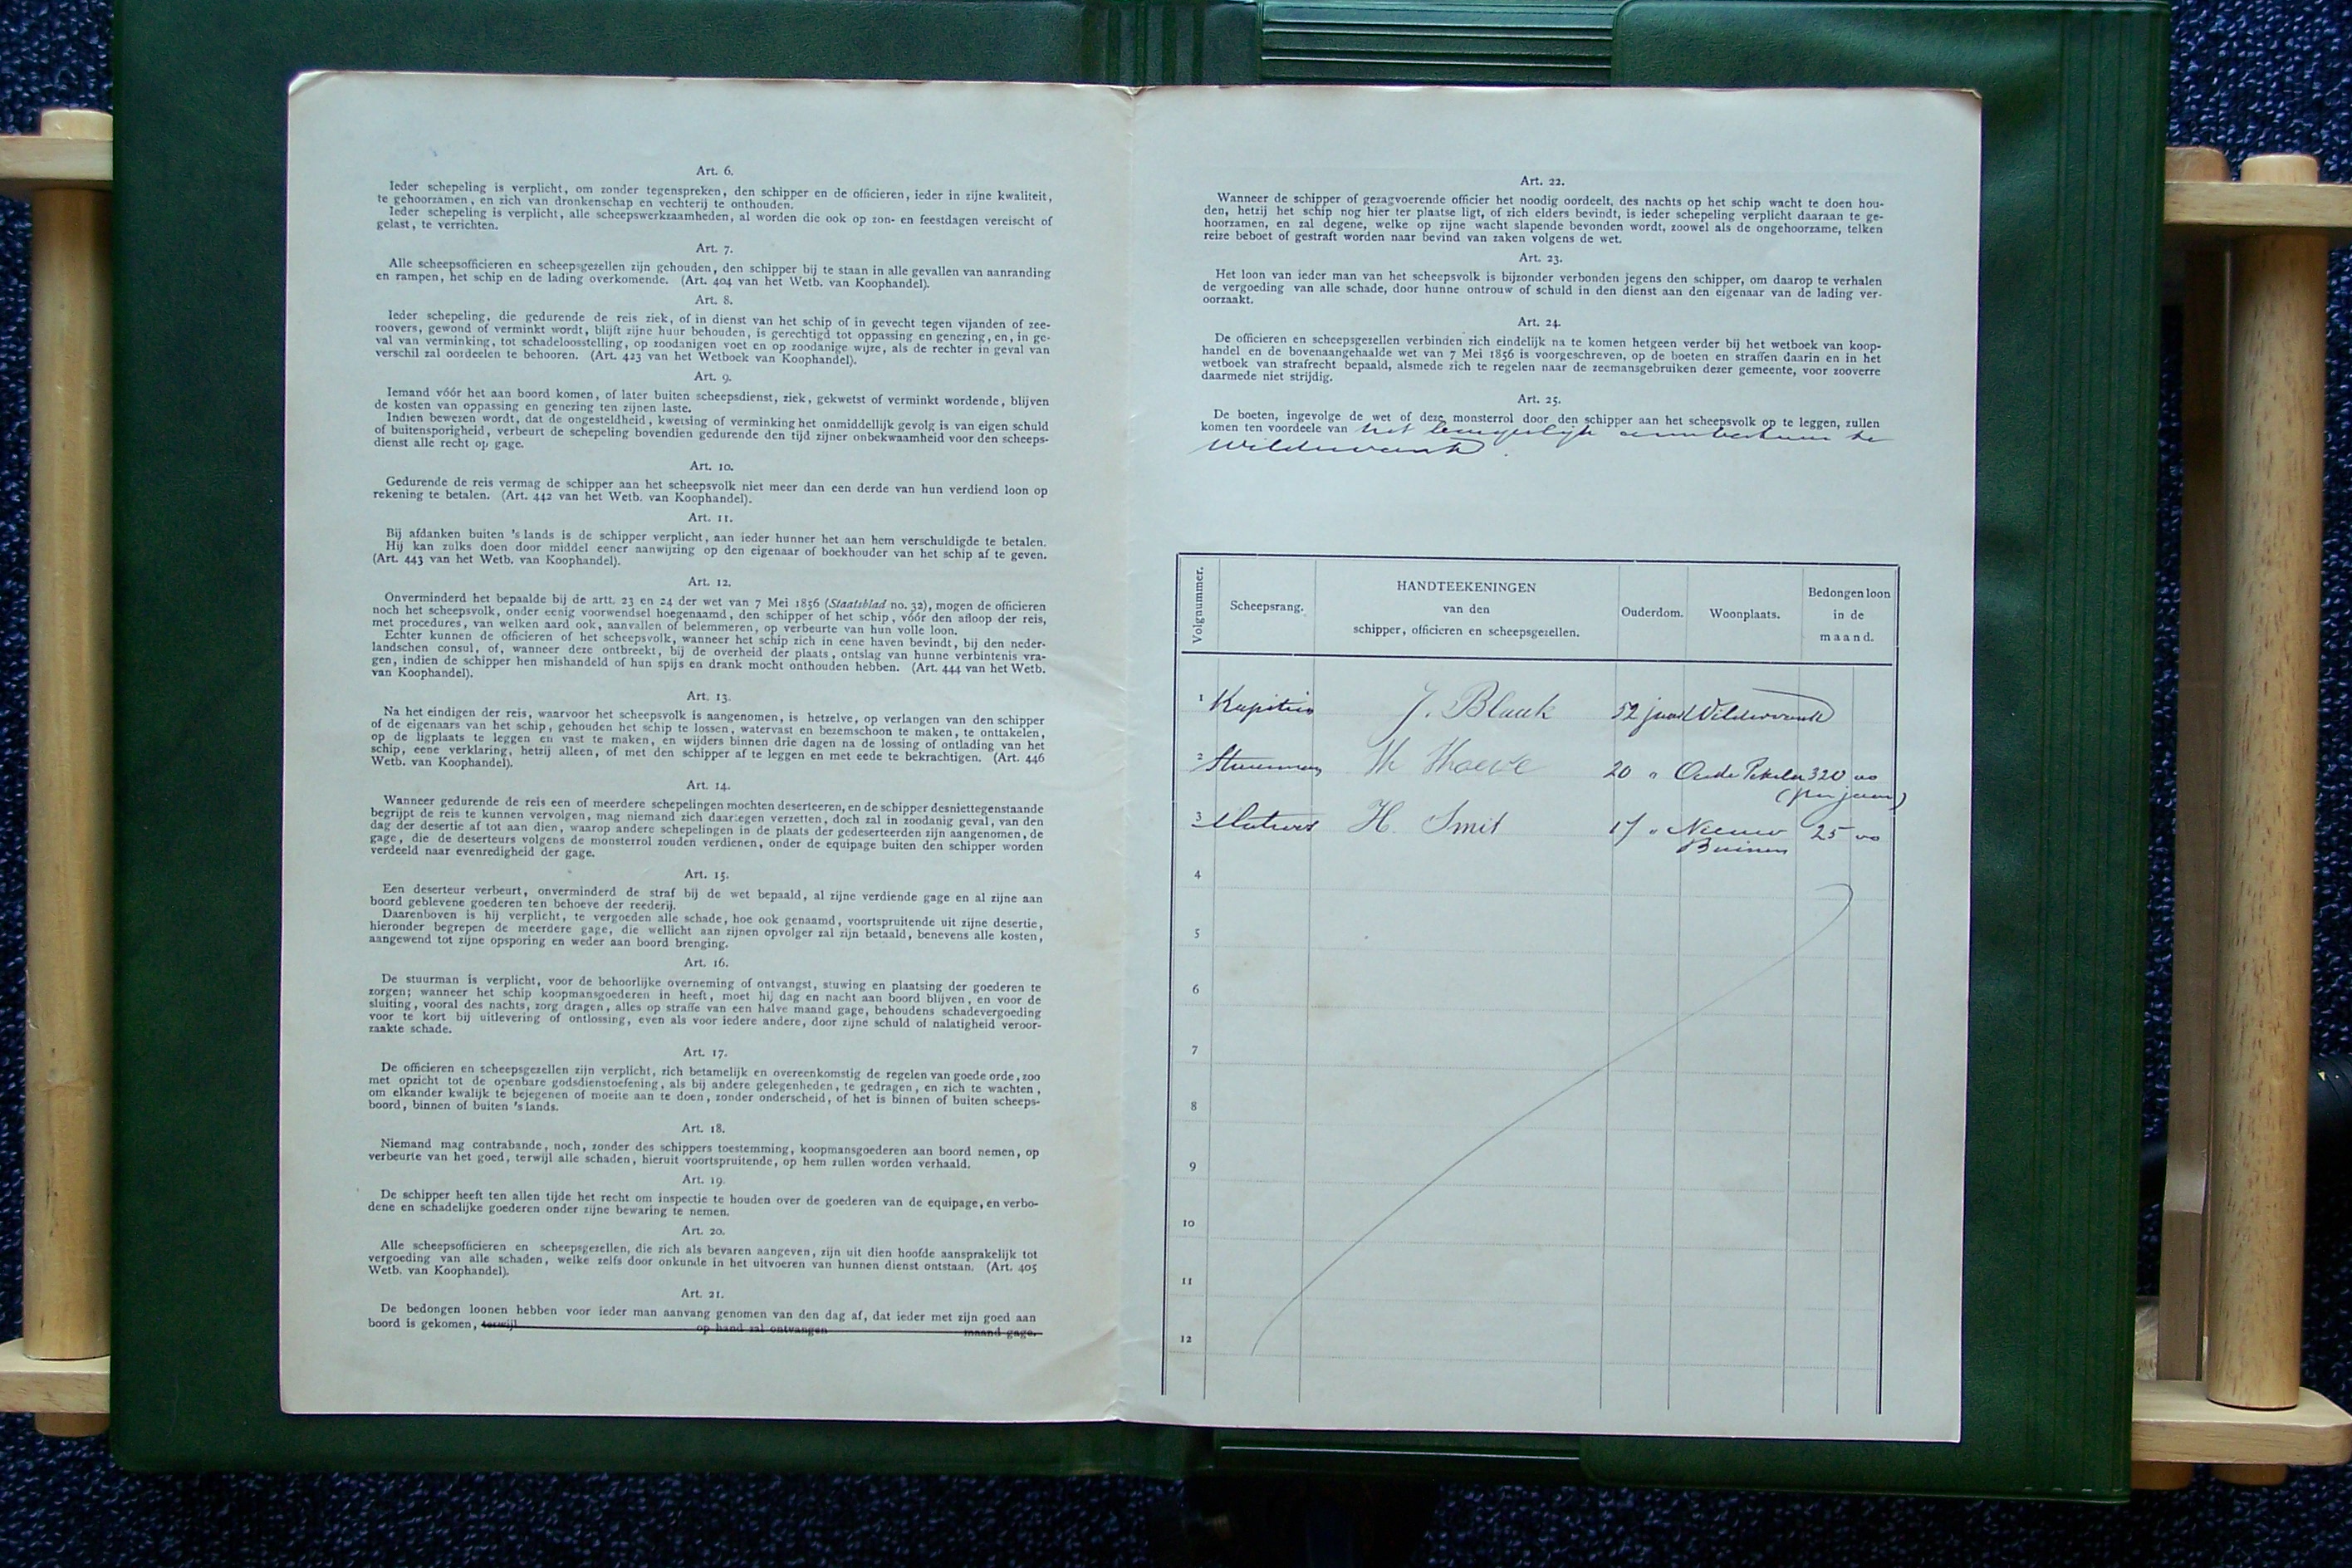 Art. 6.
Ieder schepeling is verplicht, om zonder tegenspreken, den schipper en de officieren, ieder in zijne kwaliteit,
te gehoorzamen, en zich van dronkenschap en vechterij te onthouden.
Ieder schepeling is verplicht, alle scheepswerkzaamheden, al worden die ook op zon- en feestdagen vereischt of
gelast, te verrichten.
Art. 7.
Alle scheepsofficieren en scheepsgezellen zijn gehouden, den schipper bij te staan in alle gevallen van aanranding
en rampen, het schip en de lading overkomende. (Art. 404 van het Wetb. van Koophandel).
Art. 8.
Ieder schepeling, die gedurende de reis ziek, of in dienst van het schip of in gevecht tegen vijanden of zee-
roovers, gewond of verminkt wordt, blijft zijne huur behouden, is gerechtigd tot oppassing en genezing, en, in ge-
val van verminking, tot schadeloosstelling, op zoodanigen voet en op zoodanige wijze, als de rechter in geval van
verschil zal oordeelen te behooren. (Art. 423 van het Wetboek van Koophandel).
Art. 9.
Iemand vóór het aan boord komen, of later buiten scheepsdienst, ziek, gekwetst of verminkt wordende, blijven
de kosten van oppassing en genezing ten zijnen laste.
Indien bewezen wordt, dat de ongesteldheid, kwetsing of verminking het onmiddellijk gevolg is van eigen schuld
of buitensporigheid, verbeurt de schepeling bovendien gedurende den tijd zijner onbekwaamheid voor den scheeps-
dienst alle recht op gage.
Art. 10.
Gedurende de reis vermag de schipper aan het scheepsvolk niet meer dan een derde van hun verdiend loon op
rekening te betalen. (Art. 442 van het Wetb. van Koophandel).
Art. 11.
Bij afdanken buiten 's lands is de schipper verplicht, aan ieder hunner het aan hem verschuldigde te betalen.
Hij kan zulks doen door middel eener aanwijzing op den eigenaar of boekhouder van het schip af te geven.
(Art. 443 van het Wetb. van Koophandel).
Art. 12.
Onverminderd het bepaalde bij de artt. 23 en 24 der wet van 7 Mei 1856 (Staatsblad no. 32), mogen de officieren
noch het scheepsvolk, onder eenig voorwendsel hoegenaamd, den schipper of het schip, vóór den afloop der reis,
met procedures, van welken aard ook, aanvallen of belemmeren, op verbeurte van hun volle loon.
Echter kunnen de officieren of het scheepsvolk, wanneer het schip zich in eene haven bevindt, bij den neder-
landschen consul, of, wanneer deze ontbreekt, bij de overheid der plaats, ontslag van hunne verbintenis vra-
gen, indien de schipper hen mishandeld of hun spijs en drank mocht onthouden hebben. (Art. 444 van het Wetb.
van Koophandel).
Art. 13.
Na het eindigen der reis, waarvoor het scheepsvolk is aangenomen, is hetzelve, op verlangen van den schipper
of de eigenaars van het schip, gehouden het schip te lossen, watervast en bezemschoon te maken, te onttakelen,
op de ligplaats te leggen en vast te maken, en wijders binnen drie dagen na de lossing of ontlading van het
schip, eene verklaring, hetzij alleen, of met den schipper af te leggen en met eede te bekrachtigen. (Art. 446
Wetb. van Koophandel).
Art. 14.
Wanneer gedurende de reis een of meerdere schepelingen mochten deserteeren, en de schipper desniettegenstaande
begrijpt de reis te kunnen vervolgen, mag niemand zich daartegen verzetten, doch zal in zoodanig geval, van den
dag der desertie af tot aan dien, waarop andere schepelingen in de plaats der gedeserteerden zijn aangenomen, de
gage, die de deserteurs volgens de monsterrol zouden verdienen, onder de equipage buiten den schipper worden
verdeeld naar evenredigheid der gage.
Art. 15.
Een deserteur verbeurt, onverminderd de straf bij de wet bepaald, al zijne verdiende gage en al zijne aan
boord geblevene goederen ten behoeve der reederij.
Daarenboven is hij verplicht, te vergoeden alle schade, hoe ook genaamd, voortspruitende uit zijne desertie,
hieronder begrepen de meerdere gage, die wellicht aan zijnen opvolger zal zijn betaald, benevens alle kosten,
aangewend tot zijne opsporing en weder aan boord brenging.
Art. 16.
De stuurman is verplicht, voor de behoorlijke overneming of ontvangst, stuwing en plaatsing der goederen te
zorgen; wanneer het schip koopmansgoederen in heeft, moet hij dag en nacht aan boord blijven, en voor de
sluiting, vooral des nachts, zorg dragen, alles op straffe van een halve maand gage, behoudens schadevergoeding
voor te kort bij uitlevering of ontlossing, even als voor iedere andere, door zijne schuld of nalatigheid veroor-
zaakte schade.
Art. 17.
De officieren en scheepsgezellen zijn verplicht, zich betamelijk en overeenkomstig de regelen van goede orde, zoo
met opzicht tot de openbare godsdienstoefening, als bij andere gelegenheden, te gedragen, en zich te wachten,
om elkander kwalijk te bejegenen of moeite aan te doen, zonder onderscheid, of het is binnen of buiten scheeps-
boord, binnen of buiten 's lands.
Art. 18.
Niemand mag contrabande, noch, zonder des schippers toestemming, koopmansgoederen aan boord nemen, op
verbeurte van het goed, terwijl alle schaden, hieruit voortspruitende, op hem zullen worden verhaald.
Art. 19.
De schipper heeft ten allen tijde het recht om inspectie te houden over de goederen van de equipage, en verbo-
dene en schadelijke goederen onder zijne bewaring te nemen.
Art. 20.
Alle scheepsofficieren en scheepsgezellen, die zich als bevaren aangeven, zijn uit dien hoofde aansprakelijk tot
vergoeding van alle schaden, welke zelfs door onkunde in het uitvoeren van hunnen dienst ontstaan. (Art. 405
Wetb. van Koophandel).
Art. 21.
De bedongen loonen hebben voor ieder man aanvang genomen van den dag af, dat ieder met zijn goed aan
boord is gekomen, terwijl op hand zal ontvangen maand gage.
Art. 22.
Wanneer de schipper of gezagvoerende officier het noodig oordeelt, des nachts op het schip wacht te doen hou-
den, hetzij het schip nog hier ter plaatse ligt, of zich elders bevindt, is ieder schepeling verplicht daaraan te ge-
hoorzamen, en zal degene, welke op zijne wacht slapende bevonden wordt, zoowel als de ongehoorzame, telken
reize beboet of gestraft worden naar bevind van zaken volgens de wet.
Art. 23.
Het loon van ieder man van het scheepsvolk is bijzonder verbonden jegens den schipper, om daarop te verhalen
de vergoeding van alle schade, door hunne ontrouw of schuld in den dienst aan den eigenaar van de lading ver-
oorzaakt.
Art. 24.
De officieren en scheepsgezellen verbinden zich eindelijk na te komen hetgeen verder bij het wetboek van koop-
handel en de bovenaangehaalde wet van 7 Mei 1856 is voorgeschreven, op de boeten en straffen daarin en in het
wetboek van strafrecht bepaald, alsmede zich te regelen naar de zeemansgebruiken dezer gemeente, voor zooverre
daarmede niet strijdig.
Art. 25.
De boeten, ingevolge de wet of deze monsterrol door den schipper aan het scheepsvolk op te leggen, zullen
komen ten voordeele van het burgerlijk armbestuur te
Wildervank.
Volgnummer. Scheepsrang. HANDTEEKENINGEN van den schipper, officieren en scheepsgezellen. Ouderdom. Woonplaats. Bedongen loon in de maand.
1 Kapitein J. Blaak 52 jaar Wildervank
2 Stuurman Th Thoeve 20 " Oude Pekela 320 00
(per jaar)
3 Matroos H. Smit 17 " Nieuw 25 00
Buinen
4
5
6
7
8
9
10
11
12